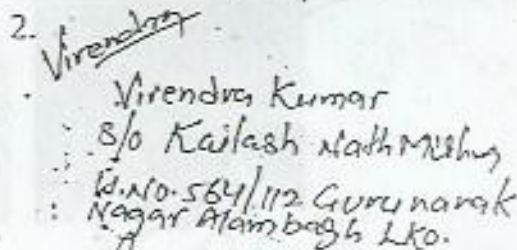 2.
Virendra
Virendra Kumar
S/o Kailash Nath Mishra
H.No. 564/112 Gurunanak
Nagar Alambagh LKo.